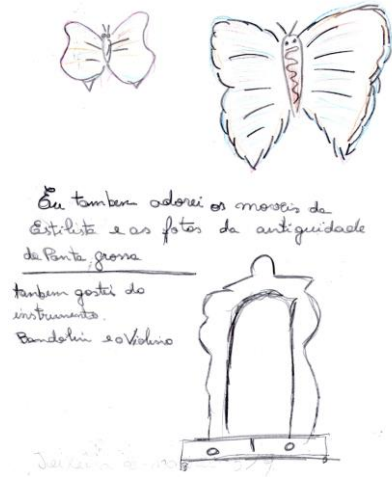 Eu tambem adorei os moveis da
Estilista e as fotos da antiguidade
de Ponta grossa
tanbem gostei do
instrumento.
Bandolin e o Violino